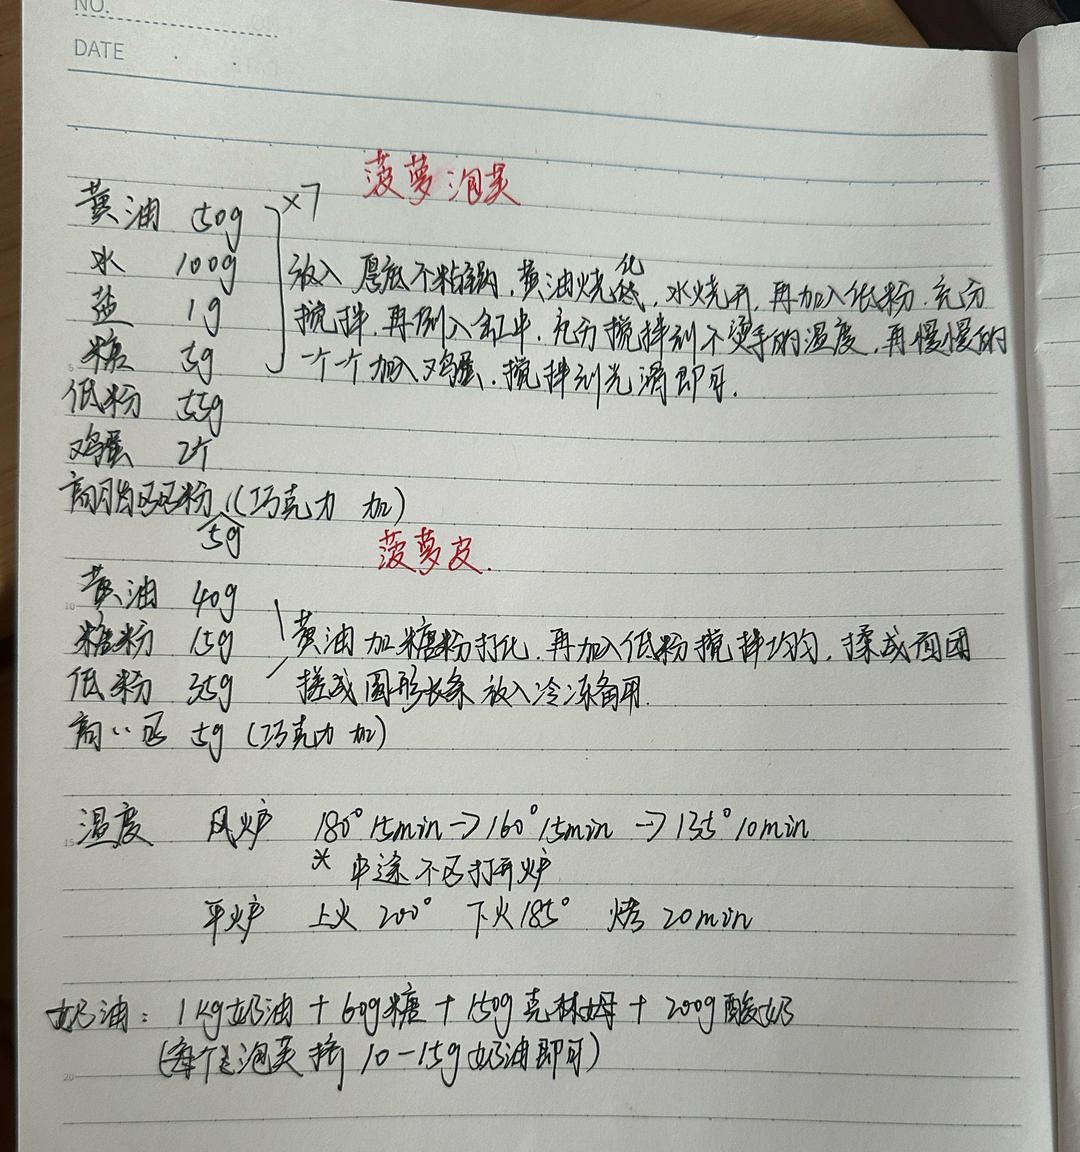 NO.
DATE
菠萝泡芙
黄油 50g ×7
水 100g
盐 1g
糖 5g
低粉 55g
鸡蛋 2个
高脂可可粉 (巧克力 加)
5g
放入 厚底不粘锅,黄油烧化,水烧开,再加入低粉,充分
搅拌,再倒入缸中,充分搅拌到不烫手的温度,再慢慢的
一个个加入鸡蛋,搅拌到光滑即可.
菠萝皮.
黄油 40g
糖粉 15g
低粉 35g
高〃可 5g (巧克力 加)
黄油加糖粉打化,再加入低粉搅拌均匀,揉成面团
搓成圆形长条 放入冷冻备用.
温度 风炉 180° 15min → 160° 15min → 135° 10min
* 中途不可打开炉
平炉 上火 200° 下火 185° 烤 20min
奶油: 1kg奶油 + 60g糖 + 150g克林姆 + 200g酸奶
(每个泡芙挤 10-15g奶油即可)